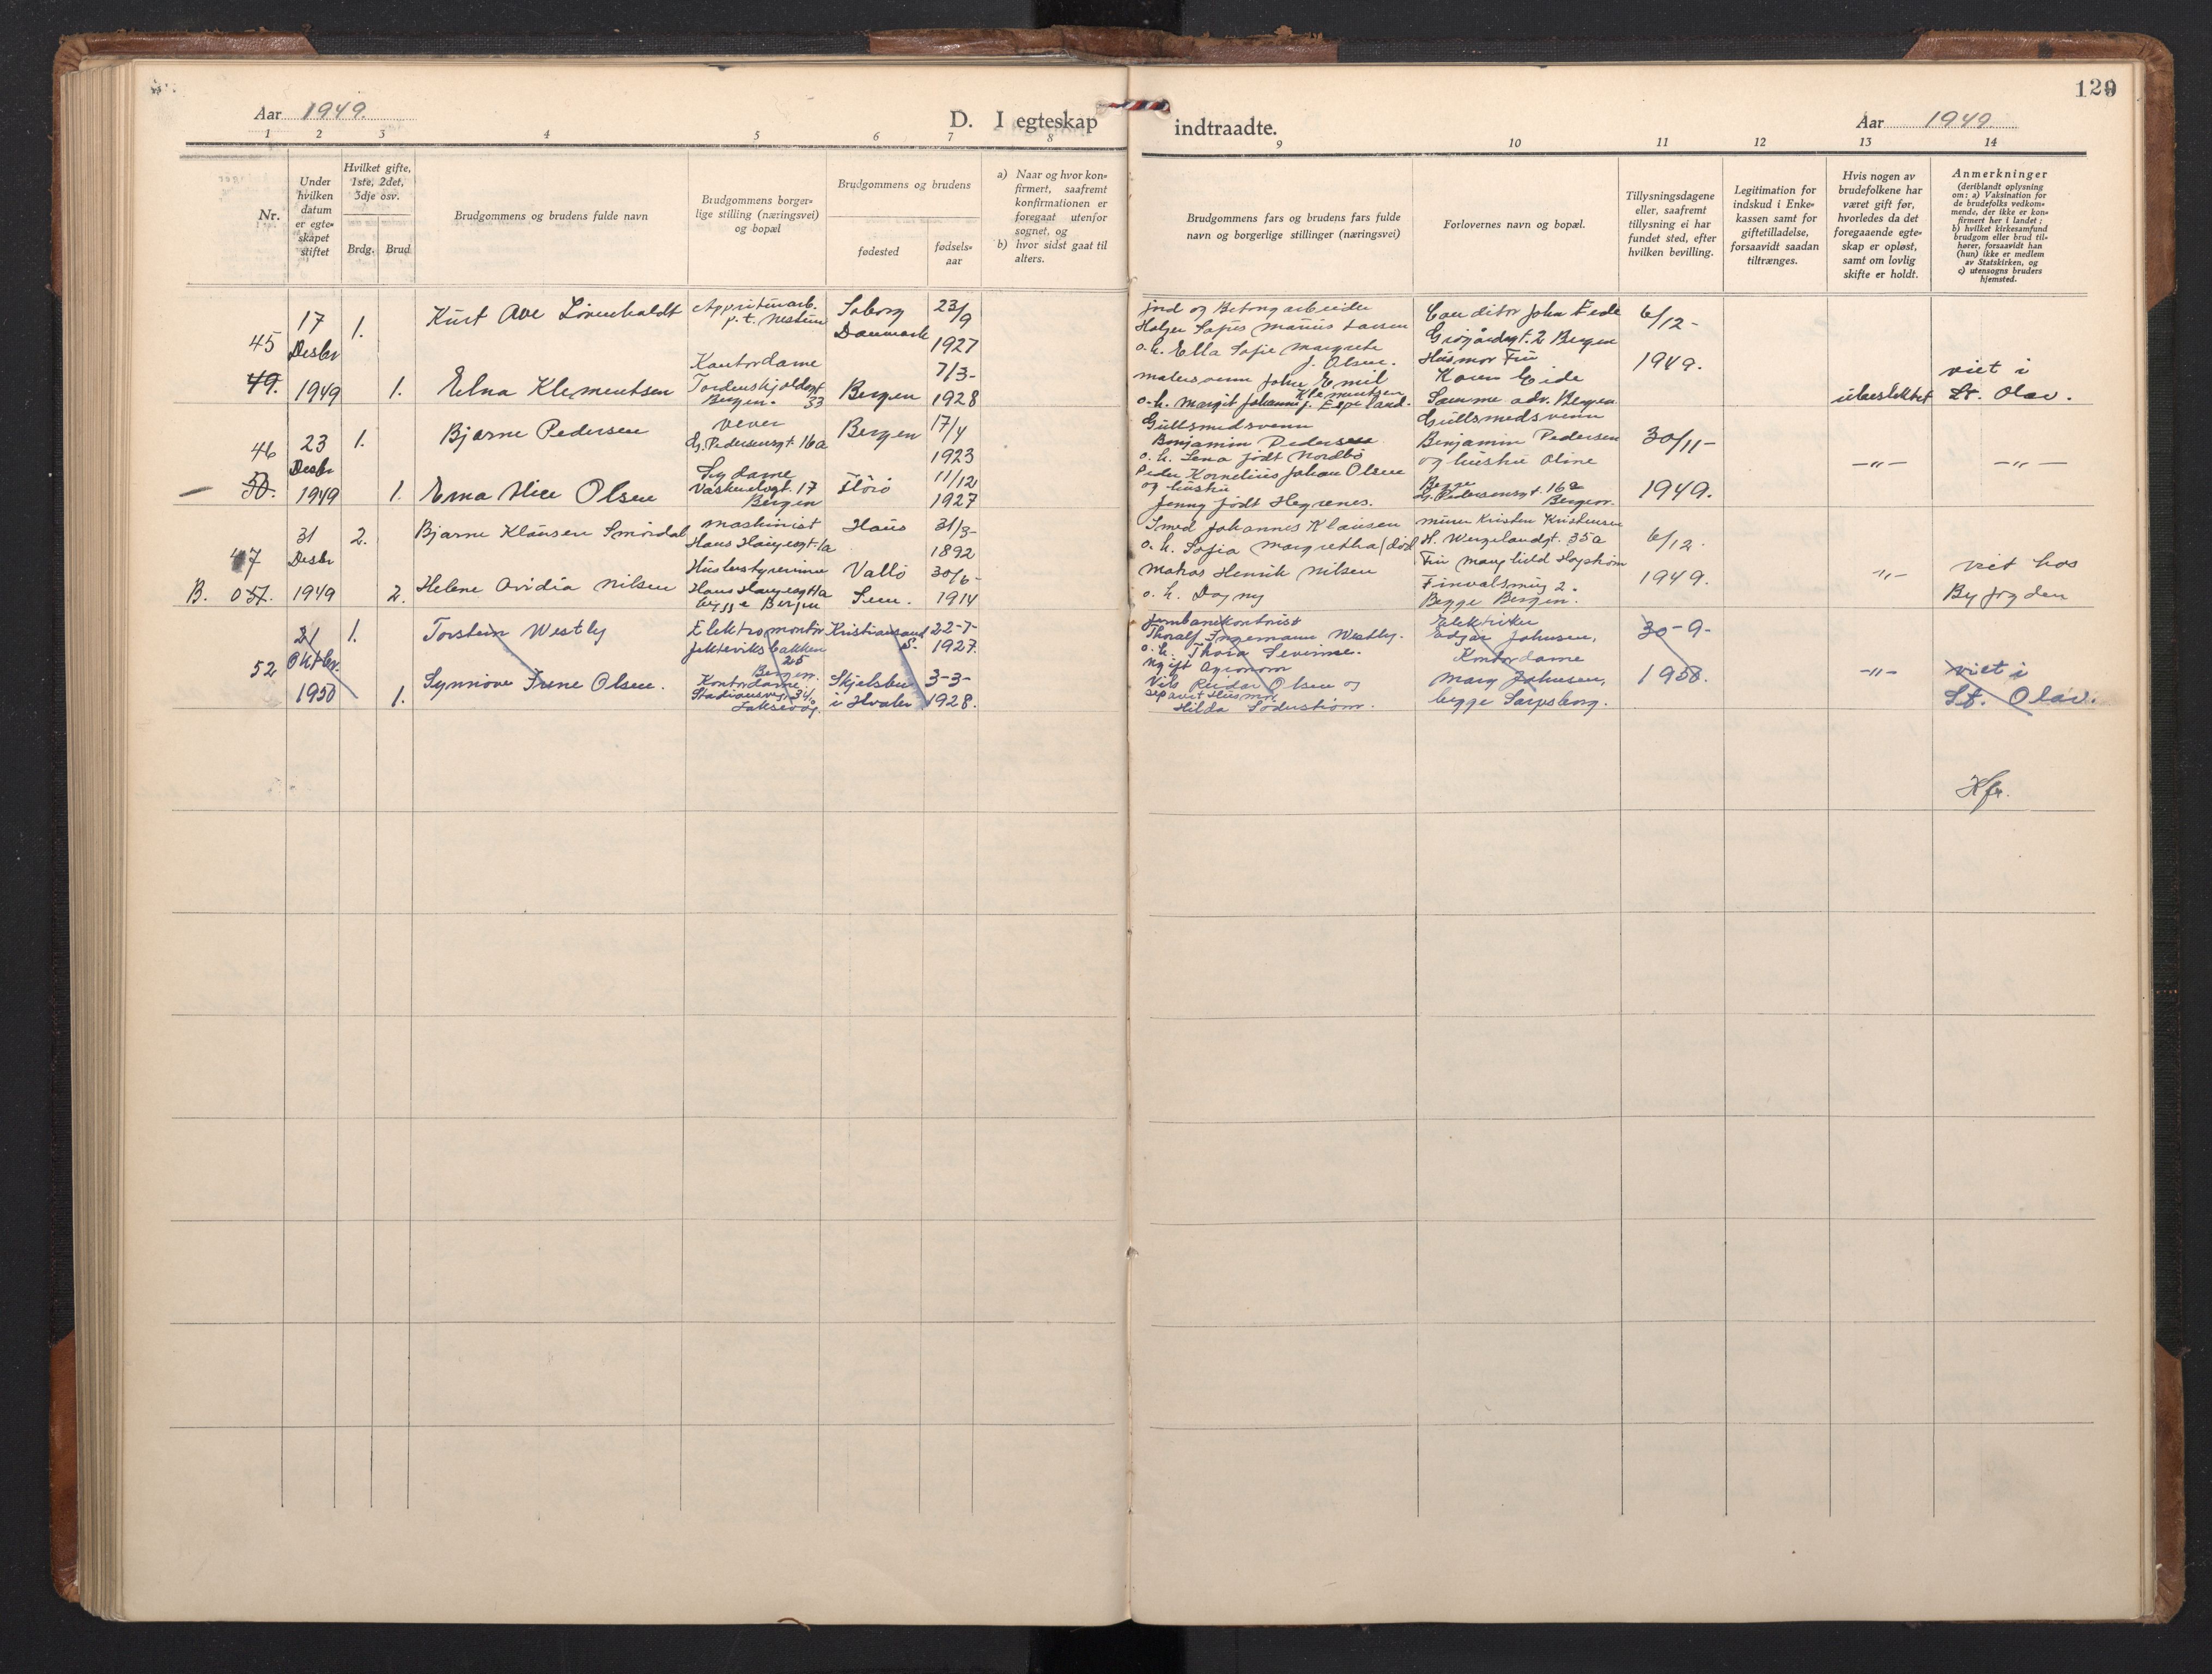 129
Aar 1949.
D. I egteskap indtraadte.
Aar 1949.
1 2 3 4 5 6 7 8 9 10 11 12 13 14
Nr.
Under hvilken datum er egteskapet stiftet
Hvilket gifte, 1ste, 2det, 3dje osv.
Brdg. Brud
Brudgommens og brudens fulde navn
Brudgommens borgerlige stilling (næringsvei) og bopæl
Brudgommens og brudens
fødested
fødselsaar
a) Naar og hvor konfirmert, saafremt konfirmationen er foregaat utenfor sognet, og
b) hvor sidst gaat til alters.
Brudgommens fars og brudens fars fulde navn og borgerlige stillinger (næringsvei)
Forlovernes navn og bopæl.
Tillysningsdagene eller, saafremt tillysning ei har fundet sted, efter hvilken bevilling.
Legitimation for indskud i Enkekassen samt for giftetilladelse, forsaavidt saadan tiltrænges.
Hvis nogen av brudefolkene har været gift før, hvorledes da det foregaaende egteskap er opløst, samt om lovlig skifte er holdt.
Anmerkninger
(deriblandt oplysning om: a) Vaksination for de brudefolks vedkommende, der ikke er konfirmert her i landet; b) hvilket kirkesamfund brudgom eller brud tilhører, forsaavidt han (hun) ikke er medlem av Statskirken, og c) utensogns bruders hjemsted.
45
49.
17
Desbr
1949
1.
Kurt Ave Lövenholdt
p.t. Nestun
Soborg
Danmark
23/9
1927
jord og Betong arbeider
Holger Sofus Marius Larsen
o.h. Ella Sofie Margrete
J. Olsen.
Conditor John Eide
2 Bergen
6/12-
1949.
1.
Elna Klementsen
Kontordame
Tordenskjoldsgt
Bergen. 33
Bergen
7/3-
1928
malersvenn John Emil
Klementsen
o.h. Margit Johanne J. Espeland.
Husmor Fru
Karen Eide
Samme adr. Bergen
ubeslektet
viet i
St. Olav.
46
50.
23
Desbr
1949
1.
Bjarne Pedersen
Vever
G. Pedersensgt 16a
Bergen
17/4
1923
Gullsmedsvenn
Benjamin Pedersen
o.h. Lena født Nordbö
Gullsmedsvenn
Benjamin Pedersen
og hustru Oline
30/11-
1949.
-"-
-"-
1.
Erna Alice Olsen
Sydame
Vaskerelvgt. 17
Bergen
Florö
11/12
1927
Peder Kornelius Johan Olsen
og hustru
Jenny født Hegrenes.
Begge
G. Pedersensgt. 16a
Bergen.
47
B. 051.
31
Desbr
1949
2.
Bjarne Klausen Smördal
maskinist
Hans Haugesgt. 1a
Haus
31/3-
1892
Smed Johannes Klausen
o.h. Sofia Margretha (död
murer Kristen Kristensen
H. Wergelandgt. 35a
6/12.
1949.
2.
Helene Ovidia Nilsen
Husbestyrerinne
Hans Haugesgt 1a
begge Bergen
Vallö
Sem.
30/6-
1914
Matros Henrik Nilsen
o.h. Dagny
Finvalsmug 2.
Begge Bergen.
-"-
viet hos
Byfogden
52
21
Oktbr.
1950
1.
Torstein Westly
Elektromontör
Jekteviksbakken
25
Bergen.
Kristiansand
S.
22-7-
1927.
Jernbanekontorist
Thoralf Ingemann Westly.
o.h. Thora Severine.
Elektriker
Edgar Johnsen,
30-9-
1950.
1.
Synnöve Irene Olsen.
Kontordame.
Stadionsveg. 34.
Laksevåg.
Skjelsbu
i Hvaler
3-3-
1928.
Ugift Agronom
Nils Reidar Olsen og
separert Husmor
Hilda Söderström.
Kontordame
Mary Johnsen,
begge Sarpsborg.
-"-
viet i
St. Olav.
Kfr.